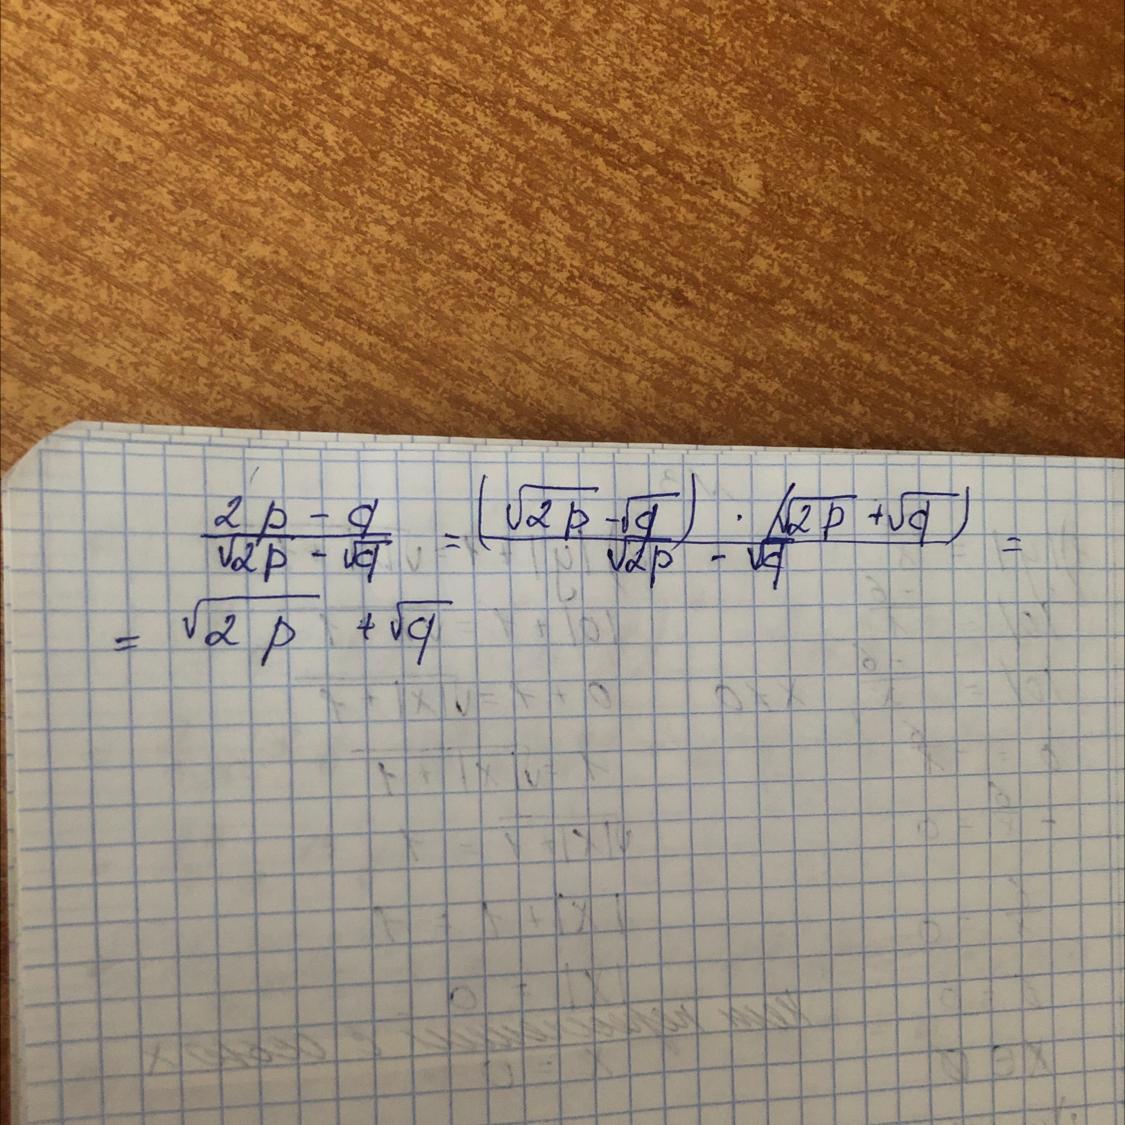 (2p - q)/(√2p - √q) = ((√2p - √q) · (√2p + √q))/(√2p - √q) =
= √2p + √q